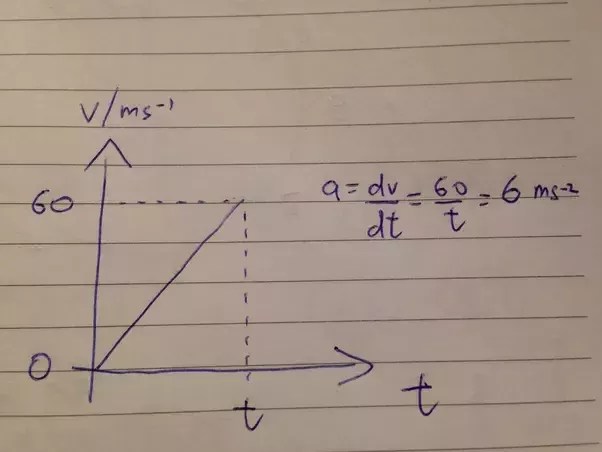 V/ms⁻¹
60
a = dv/dt = 60/t = 6 ms⁻²
0
t
t